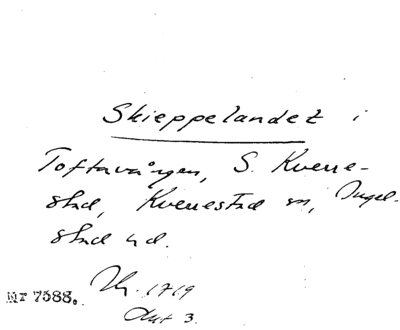 Skieppelandet i
Toftavången, S. Kverre-
stad, Kverrestad sn, Ingel-
stad hd.
Nr 7588. Lh. 1719
Akt 3.